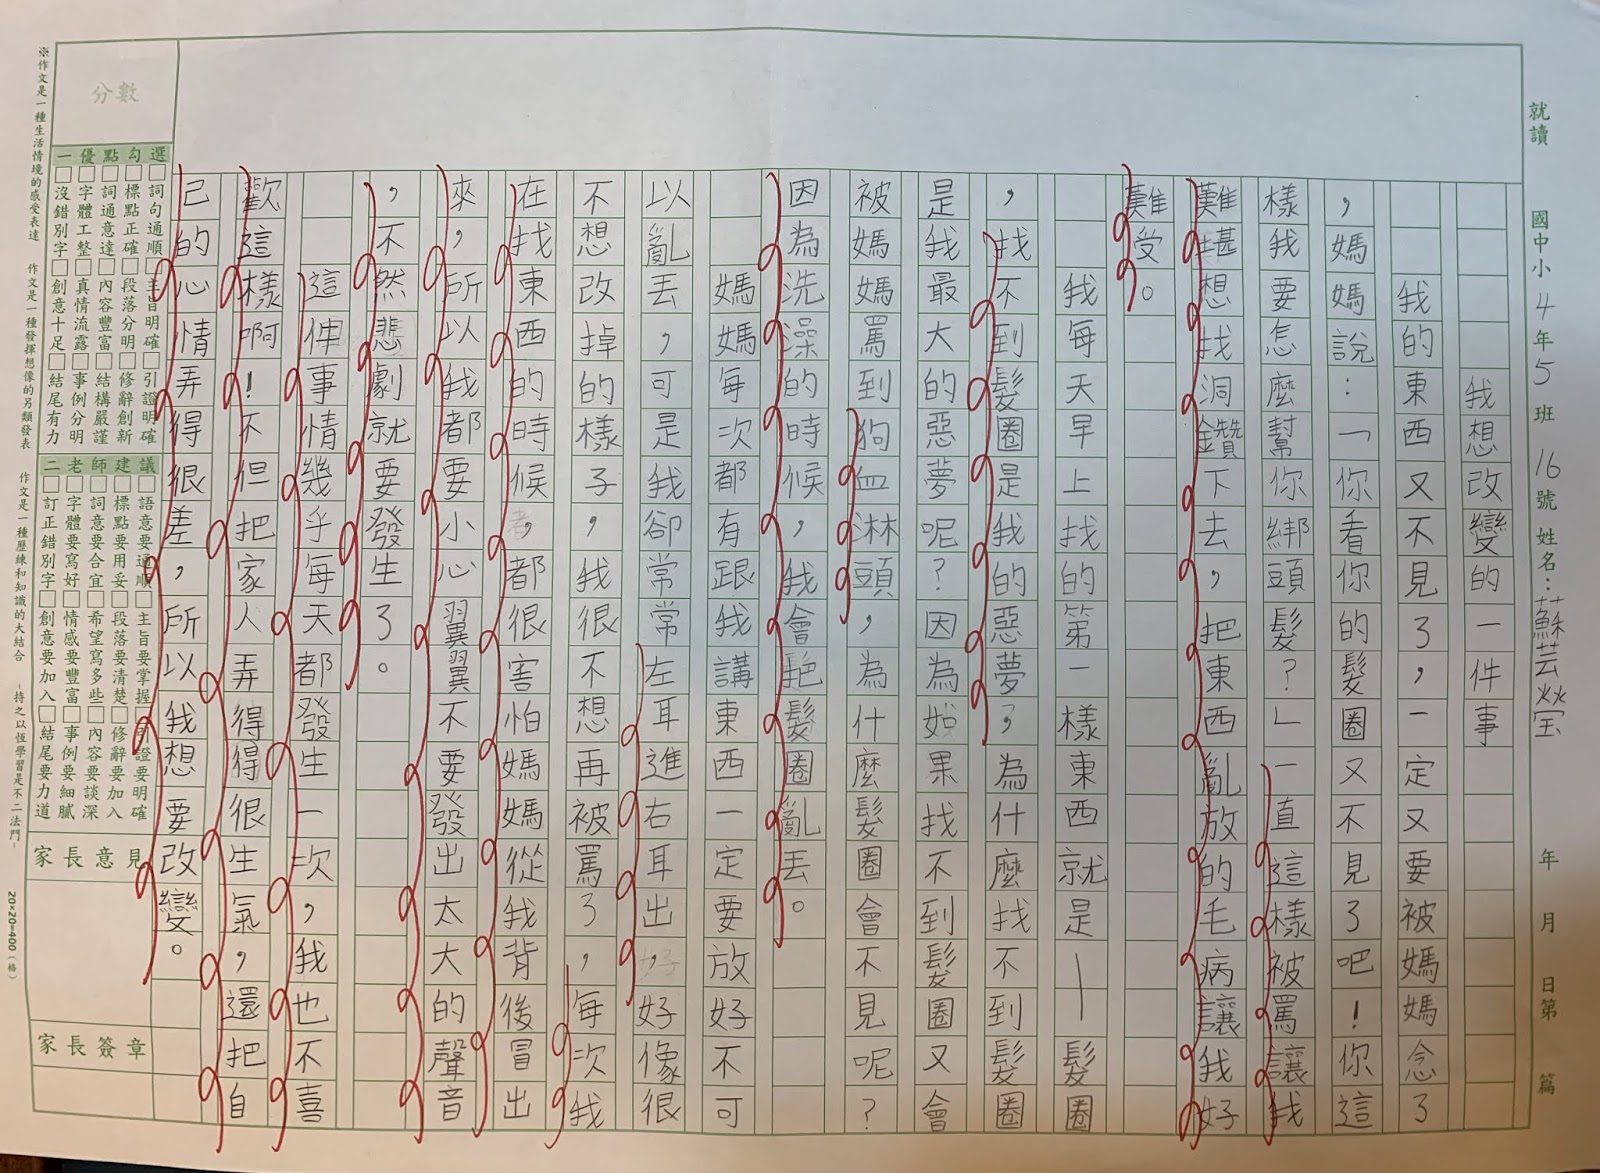 就讀 國中小 4 年 5 班 16 號 姓名：蘇芸 年 月 日第 篇
我想改變的一件事
我的東西又不見了，一定又要被媽媽念了
，媽媽說：「你看你的髮圈又不見了吧！你這
樣我要怎麼幫你綁頭髮？」一直這樣被罵讓我
難堪想找洞鑽下去，把東西亂放的毛病讓我好
難受。
我每天早上找的第一樣東西就是—髮圈
，找不到髮圈是我的惡夢，為什麼找不到髮圈
是我最大的惡夢呢？因為如果找不到髮圈又會
被媽媽罵到狗血淋頭，為什麼髮圈會不見呢？
因為洗澡的時候，我會把髮圈亂丟。
媽媽每次都有跟我講東西一定要放好不可
以亂丟，可是我卻常常左耳進右耳出，好像很
不想改掉的樣子，我很不想再被罵了，每次我
在找東西的時候，都很害怕媽媽從我背後冒出
來，所以我都要小心翼翼不要發出太大的聲音
，不然悲劇就要發生了。
這件事情幾乎每天都發生一次，我也不喜
歡這樣啊！不但把家人弄得得很生氣，還把自
己的心情弄得很差，所以我想要改變。
分數
一優點勾選
□詞句通順□主旨明確□引證明確
□標點正確□段落分明□修辭創新
□詞通意達□內容豐富□結構嚴謹
□字體工整□真情流露□事例分明
□沒錯別字□創意十足□結尾有力
二老師建議
□語意要通順□主旨要掌握□引證要明確
□標點要用妥□段落要清楚□修辭要加入
□詞意要合宜□希望寫多些□內容要談深
□字體要寫好□情感要豐富□事例要細膩
□訂正錯別字□創意要加入□結尾要力道
家長意見
家長簽章
※作文是一種生活情境的感受表達 作文是一種發揮想像的另類發表 作文是一種歷練和知識的大結合 -持之以恆學習是不二法門- 20×20=400（格）